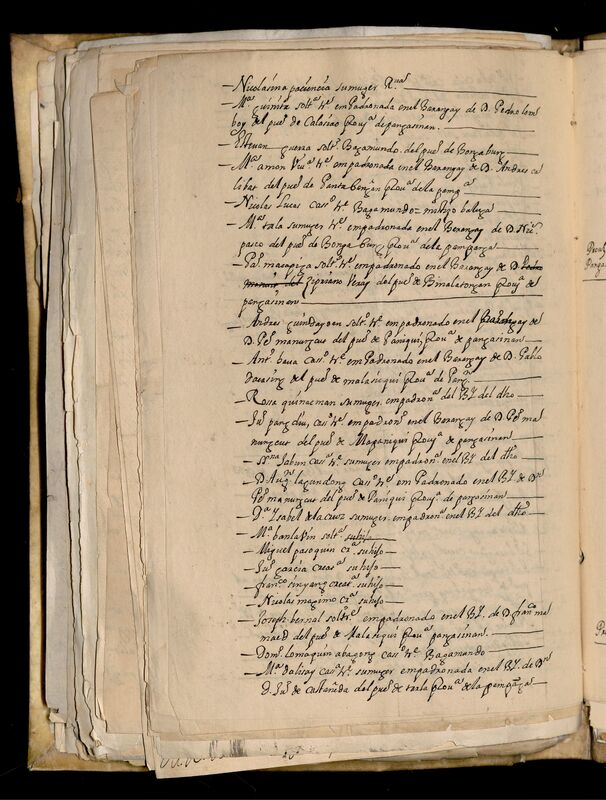 — Nicolasina paciencia sumuger Rª
— Mª quiniz soltª tt empadronada enel Barangay de D. Pedro
boy del pueº de Calasiao Provª de pangasinan
— Estevan guerra soltº Bagamundo del pueº de Bongabung
— Mª amon viuª tt empadronada enel Barangay de D. Andres ca
labas del pueº de Provª dela pampª
— Nicolas Lucas casº tt Bagamundo mestizo
— Mª tala sumuger tt empadronada enel Barangay de D.
pasco del pueº de Bonga bung Provª dela pampanga
— soltº tt empadronado enel Barangay de D. Pedro
manuir del Cipriano Veray del pueº de Bmalatongan Provª de
pangasinan
— Andres soltº tt empadronado enel Barangay de
D. Peº manungcus del pueº de Paniqui Provª de pangasinan
— Antº bava casº tt emPadronado enel Barangay de D. Pablo
dacasing del pueº de malasiqui Provª de Pangª
— Rosa quinaeman sumuger empadronª del BY del dho
— Juº pangdiu, casº tt empadronº enel Barangay de D. Peº ma
nungcus del pueº de Maganiqui Provª de pangasinan
— Jabun casª tt sumuger empadronª enel BY del dho
— D. Augⁿ lagundong casº tt em Padronado enel BY de Dⁿ
Peº manungcus del pueº de Paniqui Provª de pangasinan
— Dª Ysabel delacruz sumuger empadronª enel BY del dho
— Mª banlavin soltª suhija
— Miguel pasoquin crª suhijo
— Juº garcia creaª suhijo
— franᶜº sinyang creaª suhijo
— Nicolas magimo crª suhijo
— Joseph bernal soltº tt empadronado enel BY. de D. franᶜº me
del pueº de Malasiqui Provª pangasinan
— Domº Lomaquin abagong casº tt Bagamundo
— Mª dalisay casª tt sumuger empadronada enel BY. de Dⁿ
D. Juº de castañeda del pueº de tarla Provª dela pampanga